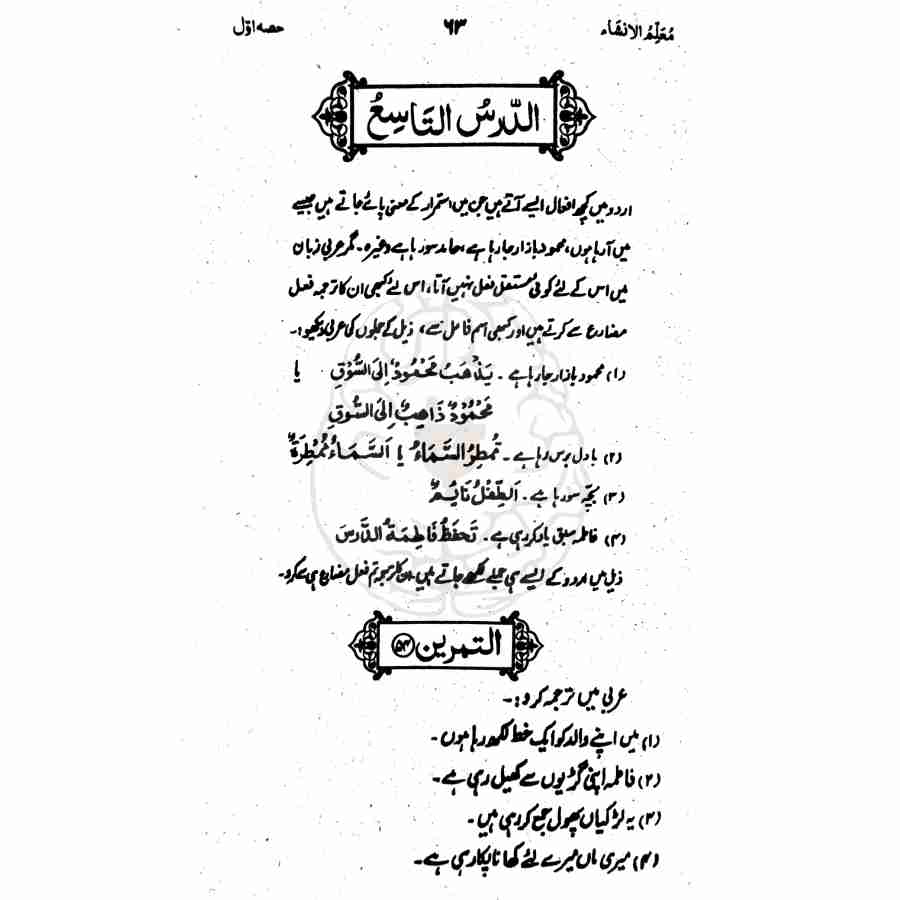 مُعَلِّمُ الانشاء ۶۳ حصہ اوّل
الدَّرسُ التَاسِعُ
اردو میں کچھ افعال ایسے آتے ہیں جن میں استمرار کے معنی پائے جاتے ہیں جیسے
میں آرہا ہوں، محمود بازار جارہا ہے، حامد سورہا ہے وغیرہ۔ مگر عربی زبان
میں اس کے لئے کوئی مستقل فعل نہیں آتا، اس لئے کبھی ان کا ترجمہ فعل
مضارع سے کرتے ہیں اور کبھی اسم فاعل سے، ذیل کے جملوں کی عربی دیکھو:۔
(۱) محمود بازار جارہا ہے۔ يَذْهَبُ مَحْمُودٌ إِلَى السُّوْقِ یا
مَحْمُوْدٌ ذَاهِبٌ إِلَى السُّوقِ
(۲) بادل برس رہا ہے۔ تُمطِرُ السَّمَاءُ یا اَلسَّمَاءُ مُمْطِرَةٌ
(۳) بچّہ سورہا ہے۔ اَلطِّفْلُ نَائِمٌ
(۴) فاطمہ سبق یاد کررہی ہے۔ تَحفَظُ فَاطِمَةُ الدَّرسَ
ذیل میں اردو کے ایسے ہی جملے لکھے جاتے ہیں۔ ان کا ترجمہ تم فعل مضارع ہی سے کرو۔
التمرین (۵۴)
عربی میں ترجمہ کرو:۔
(۱) میں اپنے والد کو ایک خط لکھ رہا ہوں۔
(۲) فاطمہ اپنی گڑیوں سے کھیل رہی ہے۔
(۳) یہ لڑکیاں پھول جمع کررہی ہیں۔
(۴) میری ماں میرے لئے کھانا پکارہی ہے۔